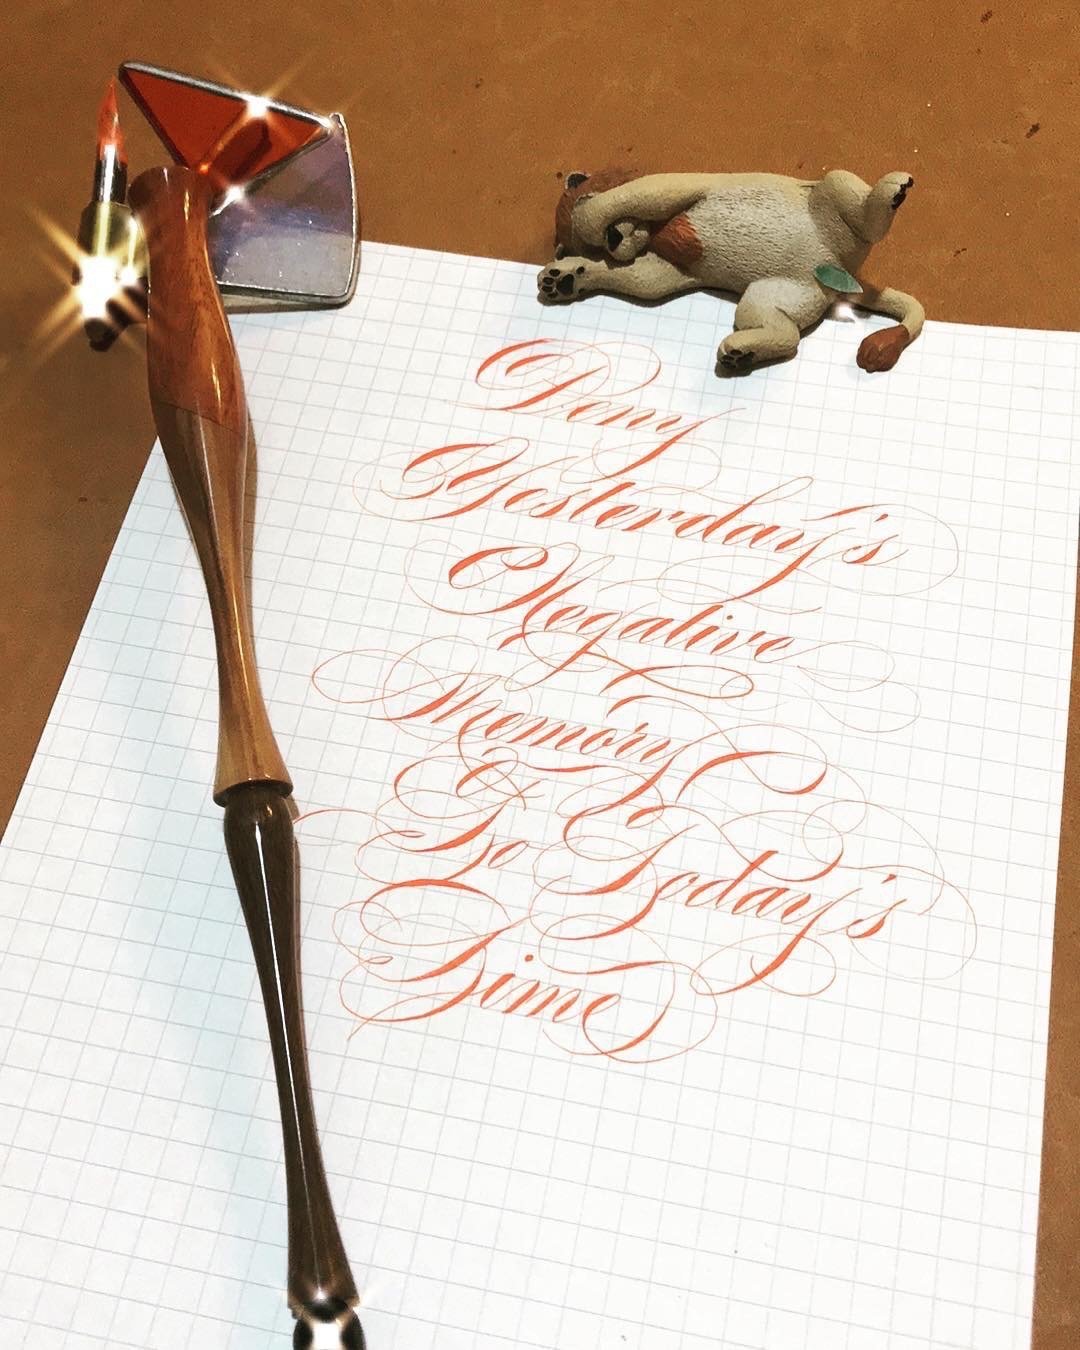 Deny
Yesterday's
Negative
Memory
To Today's
Time